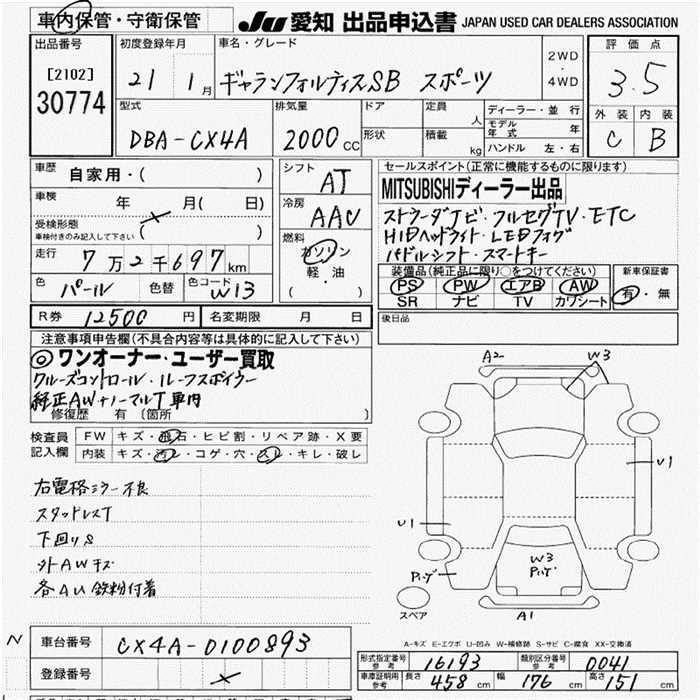 車内保管・守衛保管 JU 愛知 出品申込書 JAPAN USED CAR DEALERS ASSOCIATION
出品番号 初度登録年月 車名・グレード 評価点
[2102] 21 1月 ギャランフォルティスSB スポーツ 2WD・4WD 3.5
30774 型式 排気量 ドア 定員 ディーラー・並行 外装 内装
DBA-CX4A 2000cc 形状 人 モデル年式 年 C B
積載 kg ハンドル 左・右
車歴 自家用・( ) シフト AT セールスポイント(正常に機能するものに限ります)
車検 年 月( 日) 冷房 AAC MITSUBISHIディーラー出品
受検形態 車検付きのみ記入して下さい ( ) 燃料 ガソリン 軽・油 ( ) ストラーダナビ・フルセグTV・ETC
HIDヘッドライト・LEDフォグ
パドルシフト・スマートキー
走行 7万2千697km
装備品(純正品に限り○をつけてください) 新車保証書
色 パール 色替 色コード W13 PS PW エアB AW 有・無
SR ナビ TV カワシート
R券 12500円 名変期限 月 日 後日品
注意事項申告欄(不具合内容等は具体的に記入して下さい)
◎ワンオーナー・ユーザー買取
クルーズコントロール・ルーフスポイラー
純正AW+ノーマルT車内
修復歴 有 〔箇所 〕
検査員記入欄 FW キズ・飛石・ヒビ割・リペア跡・X要
内装 キズ・汚レ・コゲ・穴・スレ・キレ・破レ
右電格ミラー不良
スタッドレスT
下回りS
外AWキズ
各AU鉄粉付着
A2 W3
U1
U1
W3
P.ハゲ P.ハゲ
スペア A1
A-キズ E-エクボ U-凹み W-補修跡 S-サビ C-腐食 XX-交換済
N 車台番号 CX4A-0100893
登録番号
形式指定番号 参考 16193 類別区分番号 参考 0041
車庫証明用 参考 長さ 458cm 幅 176cm 高さ 151cm